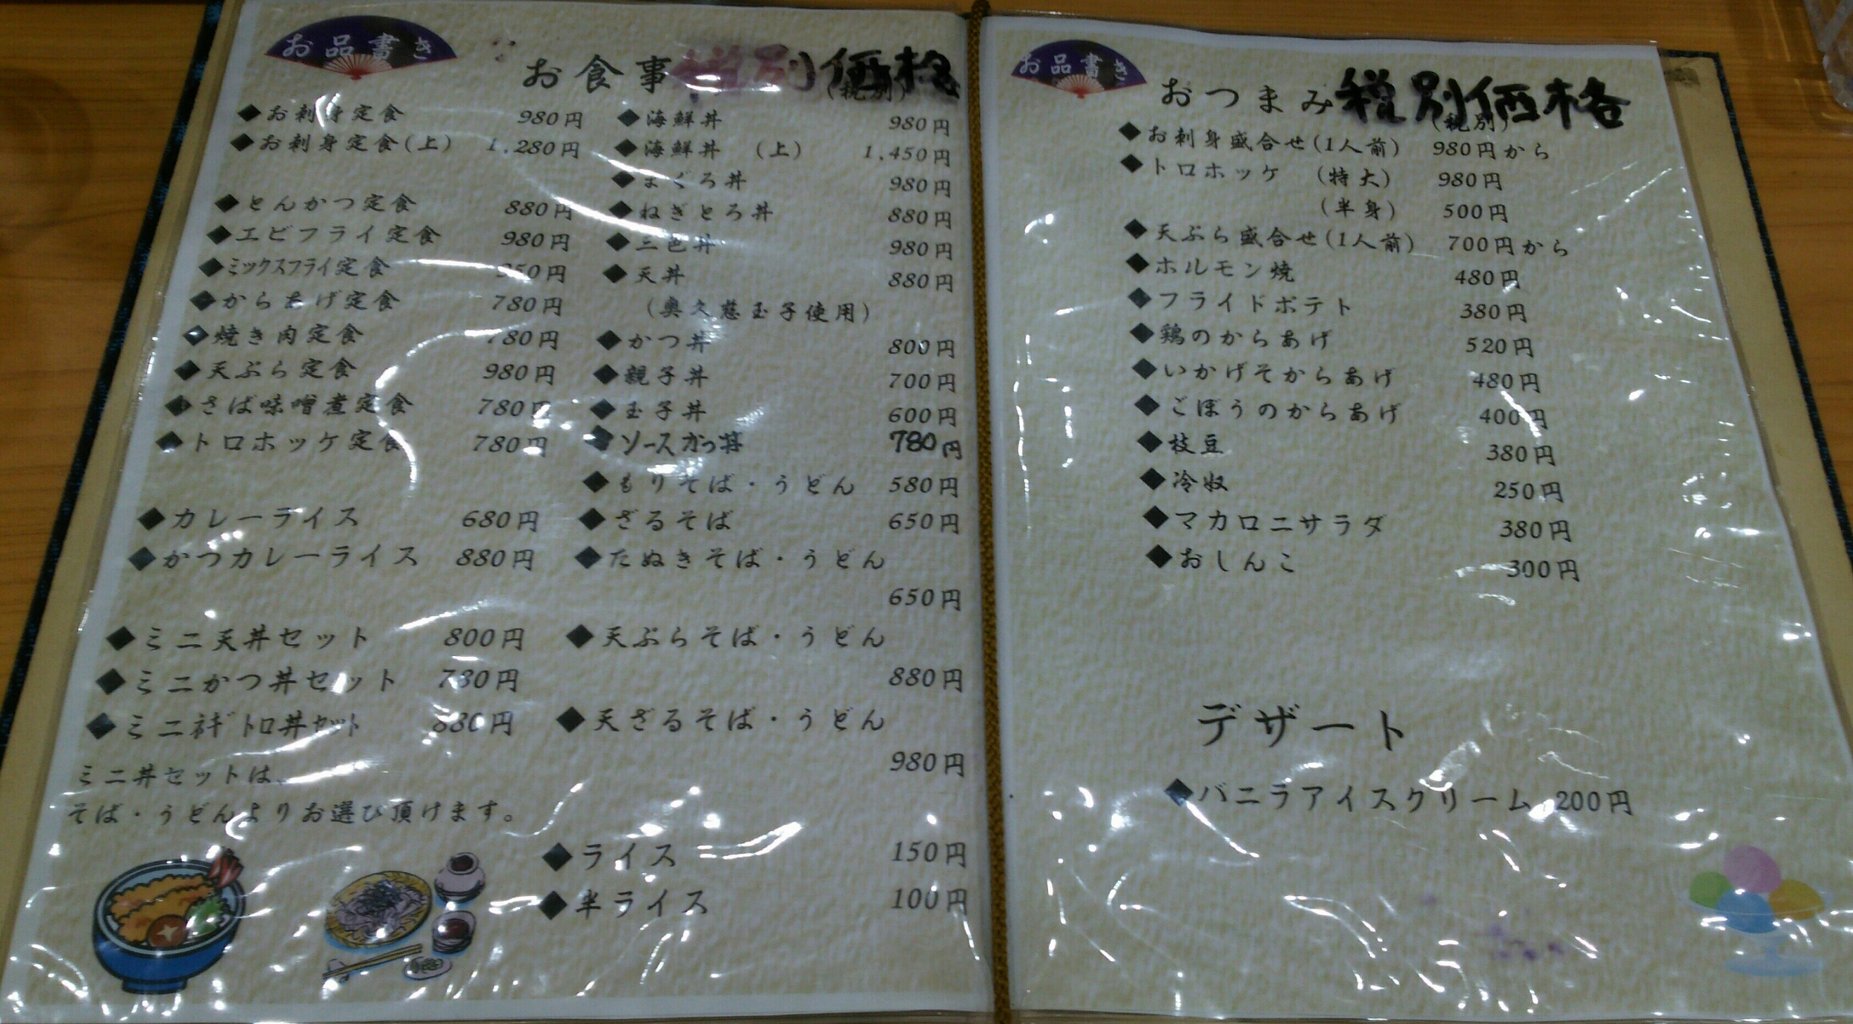 お品書き
お食事 税別価格
(税別)
◆お刺身定食 980円
◆お刺身定食(上) 1,280円
◆とんかつ定食 880円
◆エビフライ定食 980円
◆ミックスフライ定食
◆からあげ定食 780円
◆焼き肉定食 780円
◆天ぷら定食 980円
◆さば味噌煮定食 780円
◆トロホッケ定食 780円
◆カレーライス 680円
◆かつカレーライス 880円
◆ミニ天丼セット 800円
◆ミニかつ丼セット 780円
◆ミニネギトロ丼セット 880円
ミニ丼セットは、
そば・うどんよりお選び頂けます。
◆海鮮丼 980円
◆海鮮丼 (上) 1,450円
◆まぐろ丼 980円
◆ねぎとろ丼 880円
◆三色丼 980円
◆天丼 880円
(奥久慈玉子使用)
◆かつ丼 800円
◆親子丼 700円
◆玉子丼 600円
◆ソースカツ丼 780円
◆もりそば・うどん 580円
◆ざるそば 650円
◆たぬきそば・うどん
650円
◆天ぷらそば・うどん
880円
◆天ざるそば・うどん
980円
◆ライス 150円
◆半ライス 100円
お品書き
おつまみ 税別価格
(税別)
◆お刺身盛合せ(1人前) 980円から
◆トロホッケ (特大) 980円
(半身) 500円
◆天ぷら盛合せ(1人前) 700円から
◆ホルモン焼 480円
◆フライドポテト 380円
◆鶏のからあげ 520円
◆いかげそからあげ 480円
◆ごぼうのからあげ 400円
◆枝豆 380円
◆冷奴 250円
◆マカロニサラダ 380円
◆おしんこ 300円
デザート
◆バニラアイスクリーム 200円